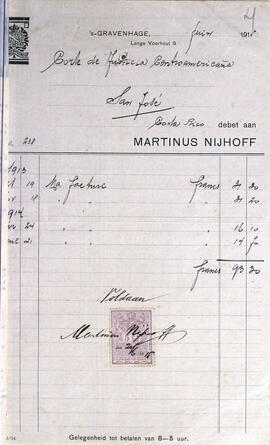 's-GRAVENHAGE, Juni 191
Lange Voorhout 9
Corte de Justicia Centroamericana
San José
Costa Rica debet aan
MARTINUS NIJHOFF
238
1913
19 Na factuur francs
18 " " " 20
1914
24 " " " 16 10
21 " " " 14
francs 93 20
Voldaan
Martinus Nijhoff
Gelegenheid tot betalen van 8–5 uur.